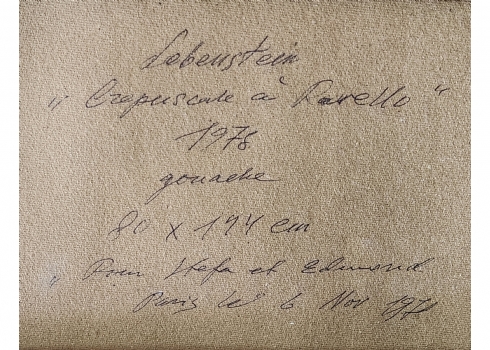 Lebenstein
„ Crepuscule à Ravello "
1978
gouache
80 x 194 cm
„ Pour Stefa et Edmond
Paris le 6 Nov 1978